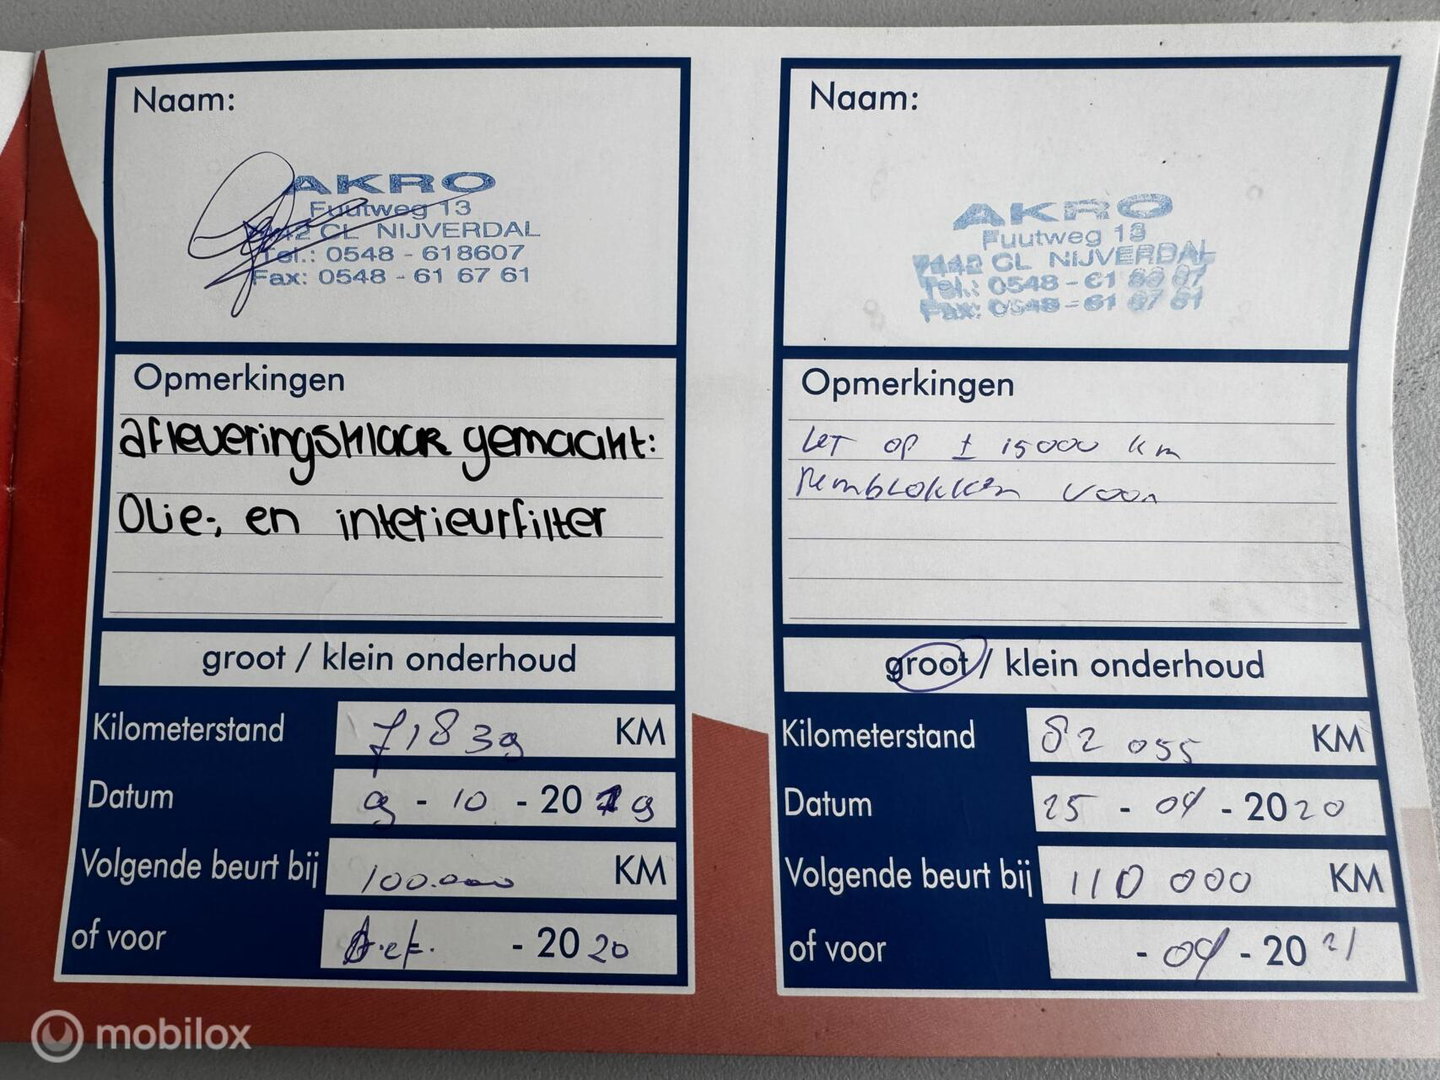 Naam:
AKRO
Fuutweg 13
7442 CL NIJVERDAL
Tel.: 0548 - 618607
Fax: 0548 - 61 67 61
Opmerkingen
afleveringsklaar gemaakt:
Olie-, en interieurfilter
groot / klein onderhoud
Kilometerstand 71839 KM
Datum 9 - 10 - 2019
Volgende beurt bij 100.000 KM
of voor - 2020
Naam:
AKRO
Fuutweg 13
7442 CL NIJVERDAL
Tel.: 0548 - 61 86 07
Fax: 0548 - 61 67 61
Opmerkingen
LET OP ± 15000 km
Remblokken voor
groot / klein onderhoud
Kilometerstand 82 055 KM
Datum 25 - 04 - 2020
Volgende beurt bij 110 000 KM
of voor - 04 - 2021
mobilox